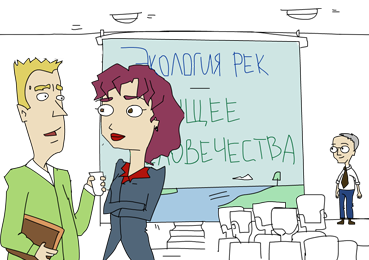 ЭКОЛОГИЯ РЕК
УЩЕЕ
ОВЕЧЕСТВА